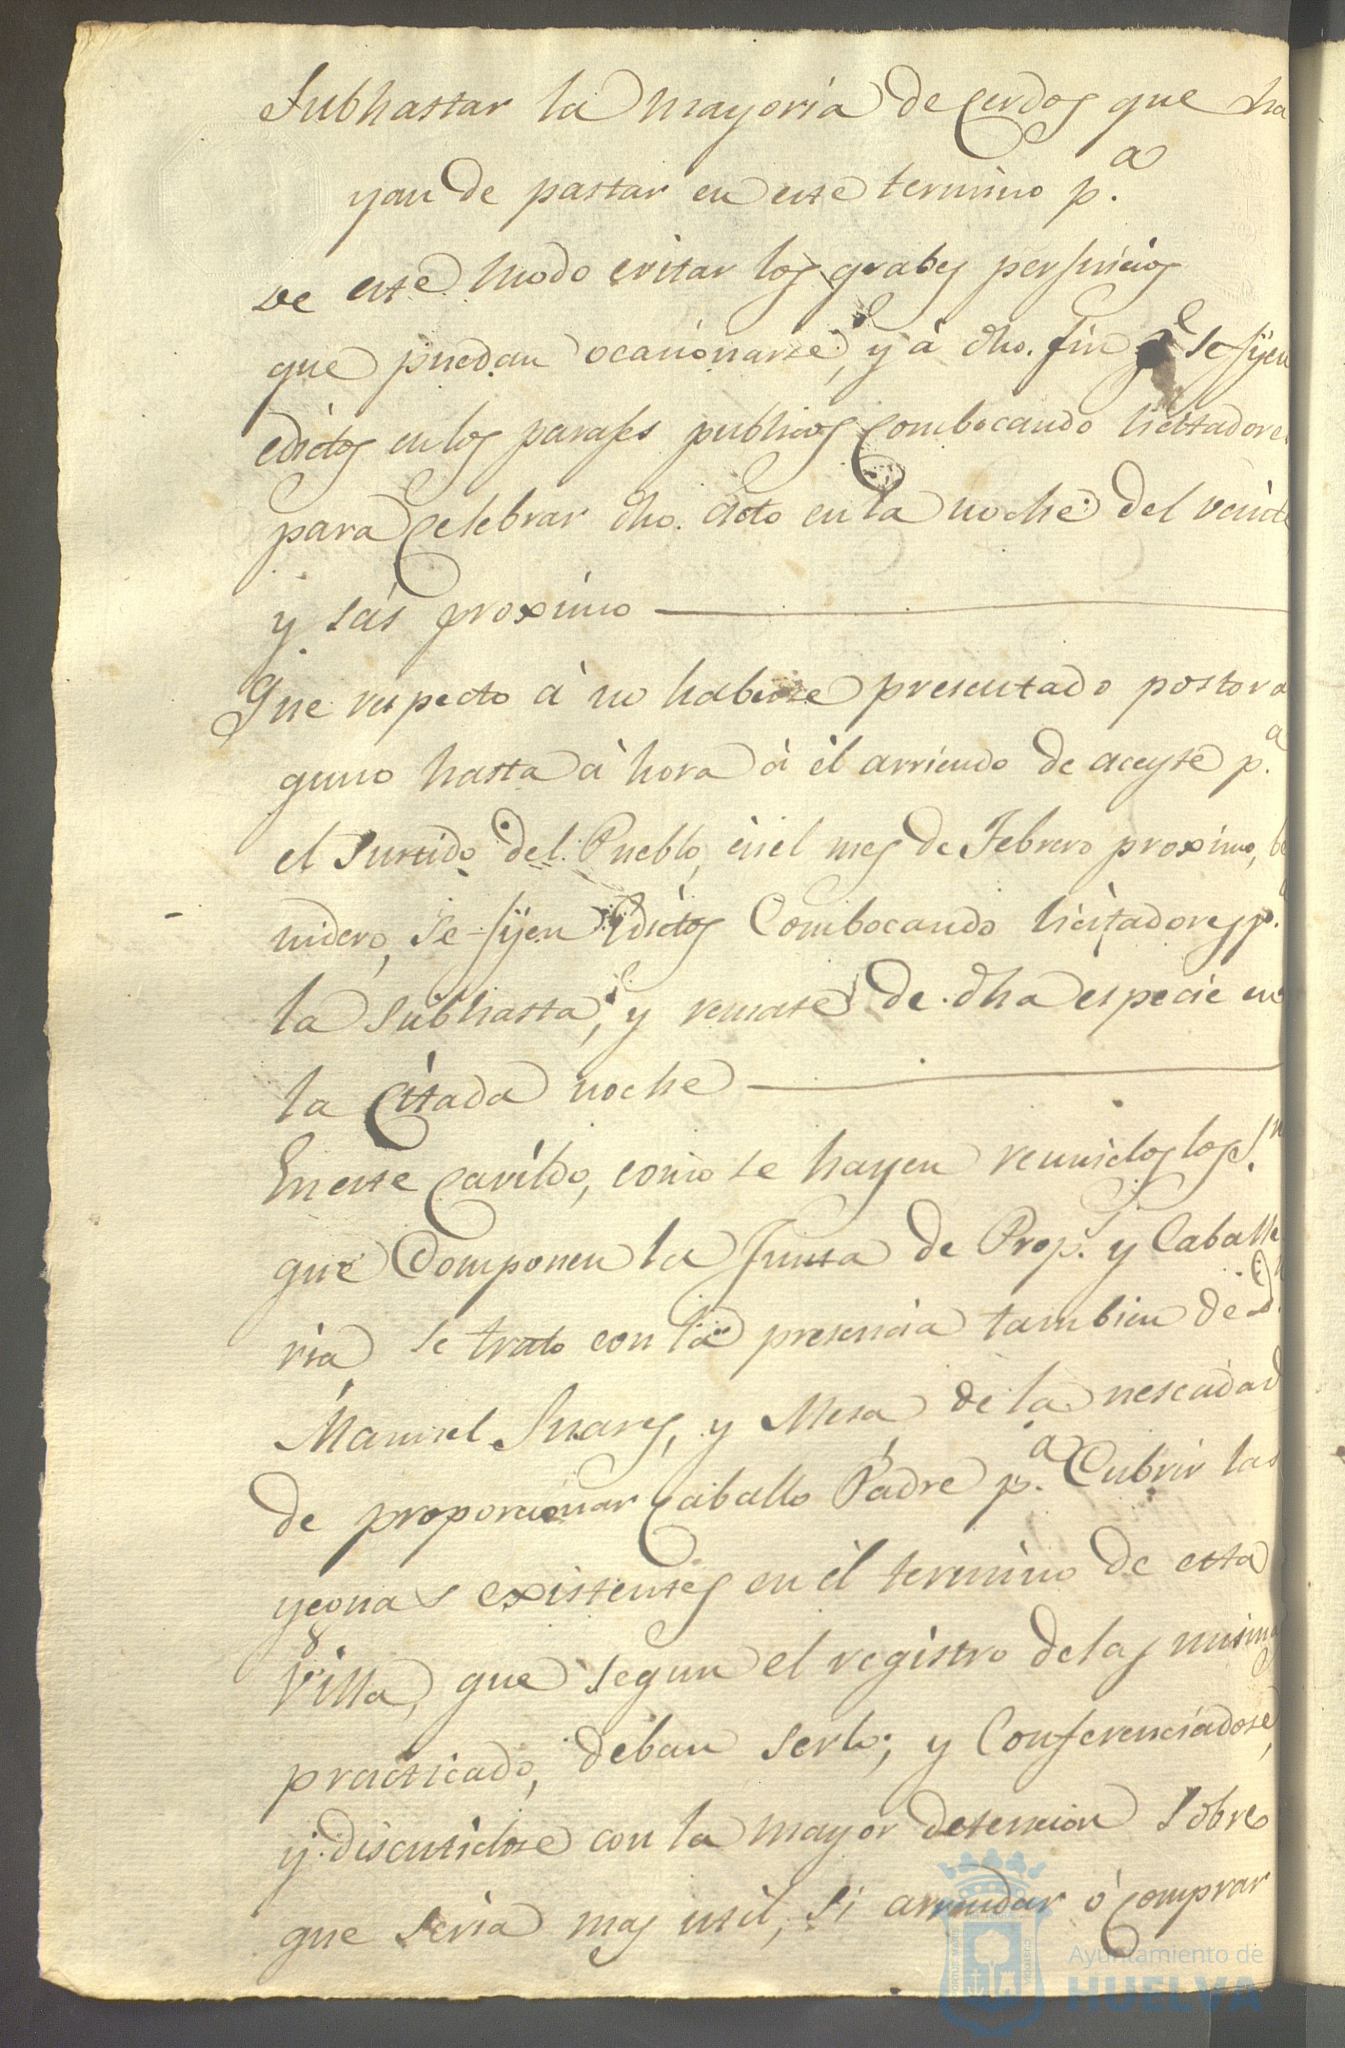 Subhastar la mayoria de Cerdos que ha
yan de pastar en este termino p.a
de este modo evitar los grabes perjuicios
que puedan ocacionarse, y á dho. fin se fijen
edictos en los parajes publicos combocando licitadores
para Celebrar dho. Acto en la noche del veinte
y séis proximo
Que respecto á no haberse presentado postor al
guno hasta á hora á él arriendo de aceyte p.a
el Surtido del Pueblo, en el mes de Febrero proximo, be
nidero, se fijen Edictos Combocando licitadores p.a
la subhasta, y remate de dha especie en
la Citada noche
En este Cavildo, como se hayen reunidos los S.res
que Componen la Junta de Prop.s y Caballe
ria se trato con la presencia tambien de D.n
Manuel Suares, y Mesa, de la nescecidad
de proporcionar Caballo Padre p.a Cubrir las
yeguas existentes en él termino de esta
Villa, que segun el registro de las mismas
practicado, déban serlo; y Conferenciadose,
y discutidose con la mayor detencion Sobre
que seria mas util, si arrendar ó comprar
Ayuntamiento de
HUELVA